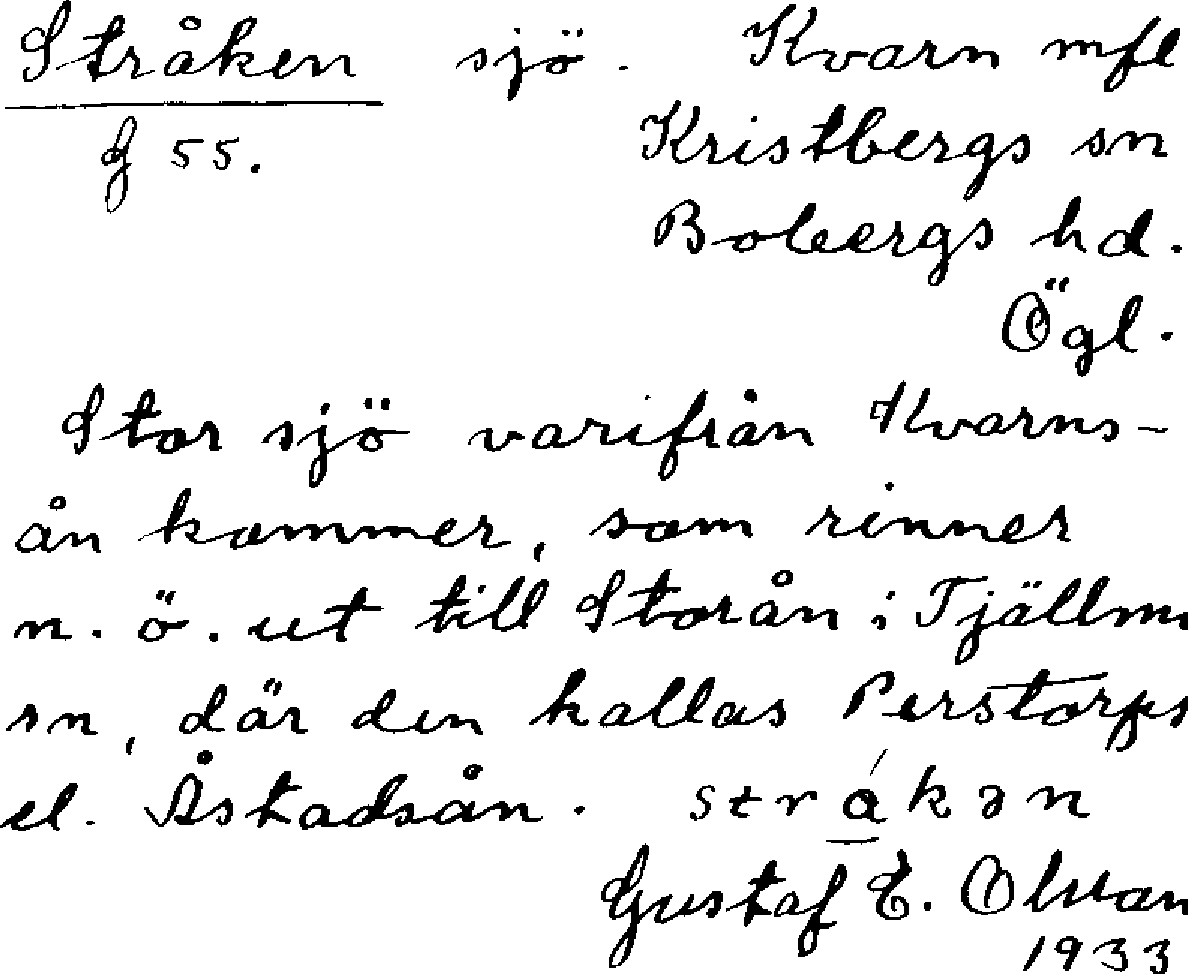 Stråken sjö. Kvarn mfl
G 55. Kristbergs sn
Bobergs hd.
Ögl.
Stor sjö varifrån Kvarns-
ån kommer, som rinner
n. ö. ut till Storån i Tjällmo
sn, där den kallas Perstorps
el. Åstadsån. stråkən
Gustaf E. Olsson
1933